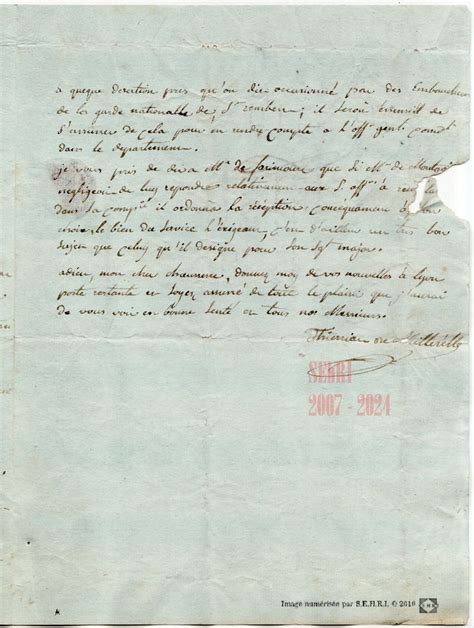 à queque desertion pres qu'on dit occasionné par des Embaucheurs
de la garde nationalle de St rembert; il seroit essensiel de
s'assurer de cela pour en rendre compte a l'offr genl comt
dans le departement.
je vous prie de dire a Mr de farimoire que si Mr de
negligeoit de luy repondre relativement aux s. offrs à
dans sa compie il ordonna la reception
choix le bien du service l'exigeant, c'en d'ailleur un tres bon
sujet que celuy qu'il designe pour son sgt major.
adieu, mon cher donnez moy de vos nouvelles à Lyon
poste restante et soyez assuré de toute le plaisir que j'aurai
de vous voir en bonne senté et tous nos Messieurs.
SEHRI
2007 - 2024
Image numérisée par S.E.H.R.I. © 2010